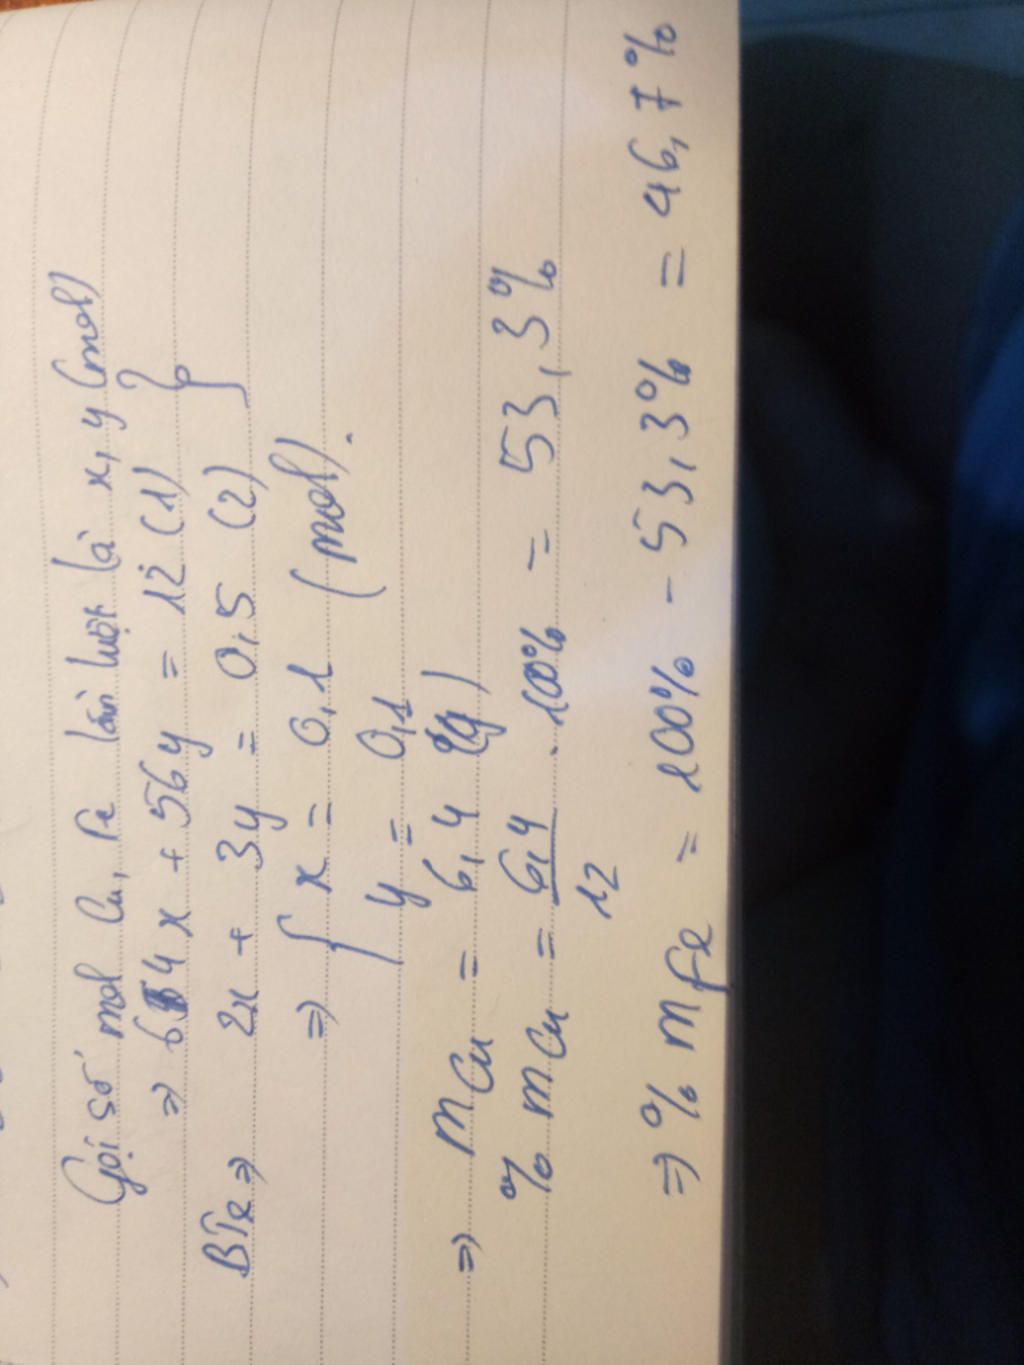 Gọi số mol Cu, Fe lần lượt là x, y (mol)
⇒ 64x + 56y = 12 (1) }
BTe ⇒ 2x + 3y = 0,5 (2)
⇒ { x = 0,1 (mol).
y = 0,1
⇒ mCu = 6,4 (g)
% mCu = 6,4/12 . 100% = 53,3%
⇒ % mFe = 100% - 53,3% = 46,7%